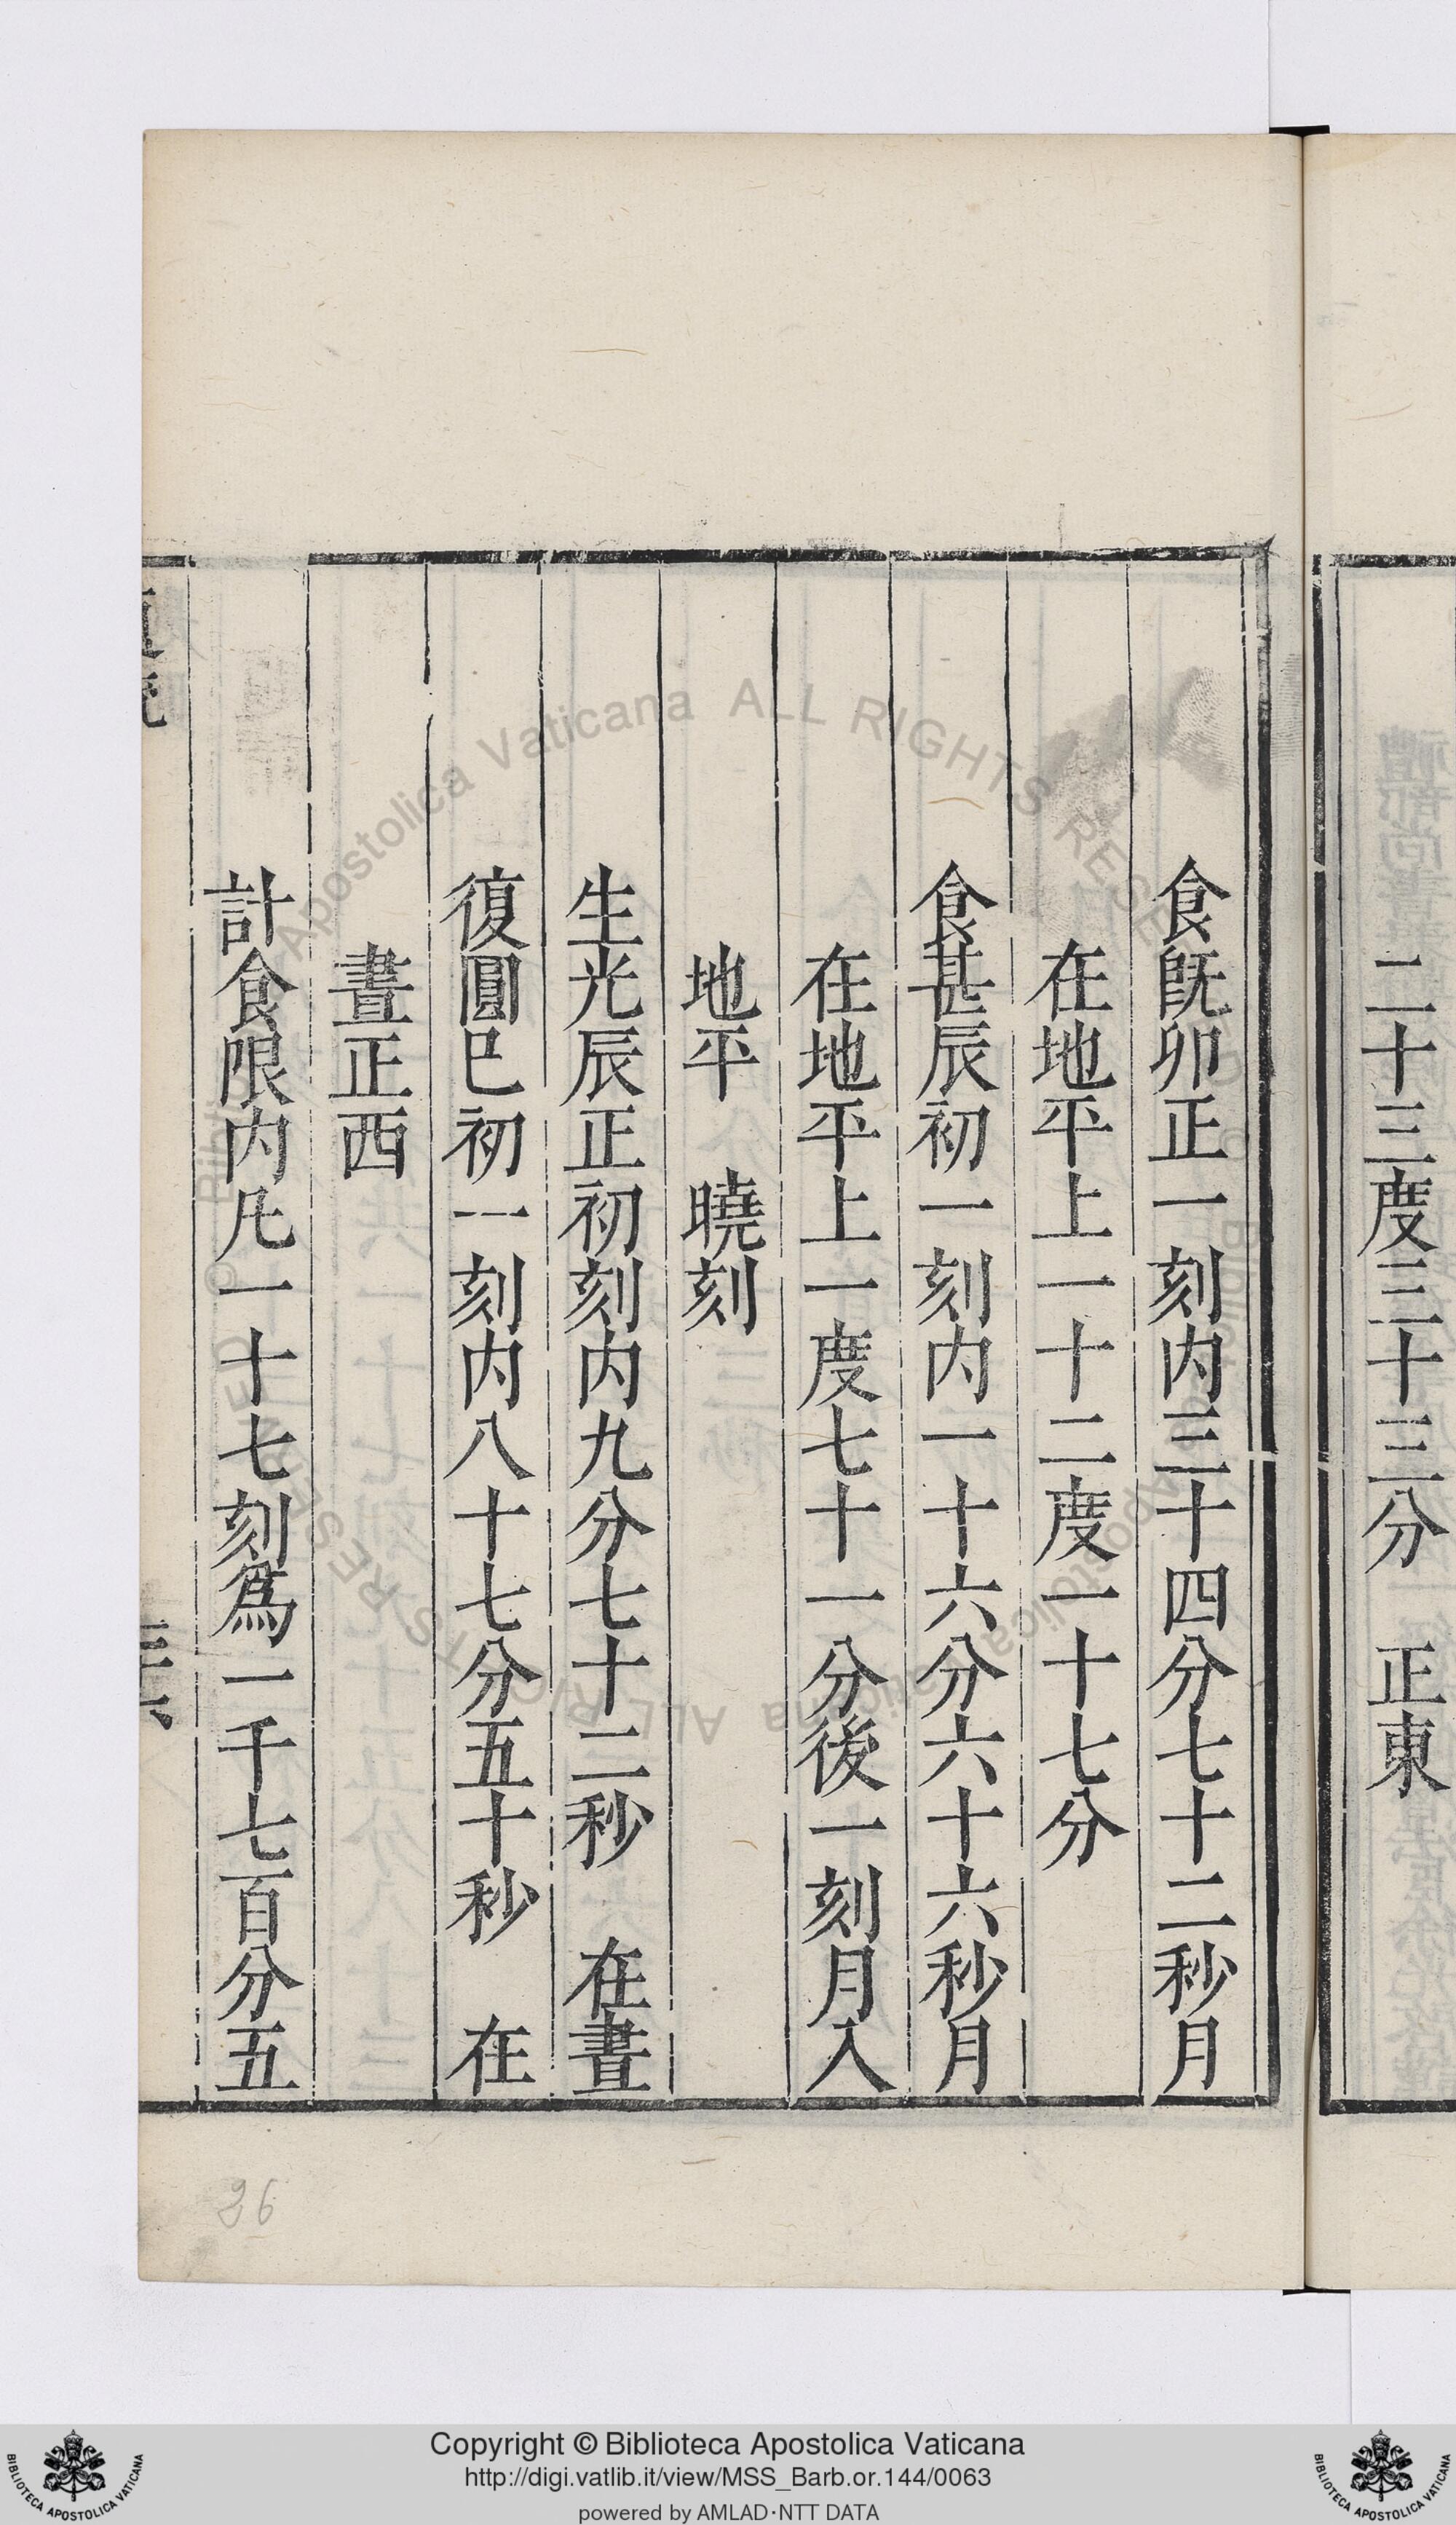 二十三度三十三分　正東
食既卯正一刻内三十四分七十二秒月
在地平上一十二度一十七分
食甚辰初一刻内一十六分六十六秒月
在地平上一度七十一分後一刻月入
地平　曉刻
生光辰正初刻内九分七十二秒　在晝
復圓巳初一刻内八十七分五十秒　在
晝正西
計食限内凡一十七刻爲一千七百分五
36
Copyright © Biblioteca Apostolica Vaticana
http://digi.vatlib.it/view/MSS_Barb.or.144/0063
powered by AMLAD·NTT DATA
BIBLIOTECA APOSTOLICA VATICANA
BIBLIOTECA APOSTOLICA VATICANA